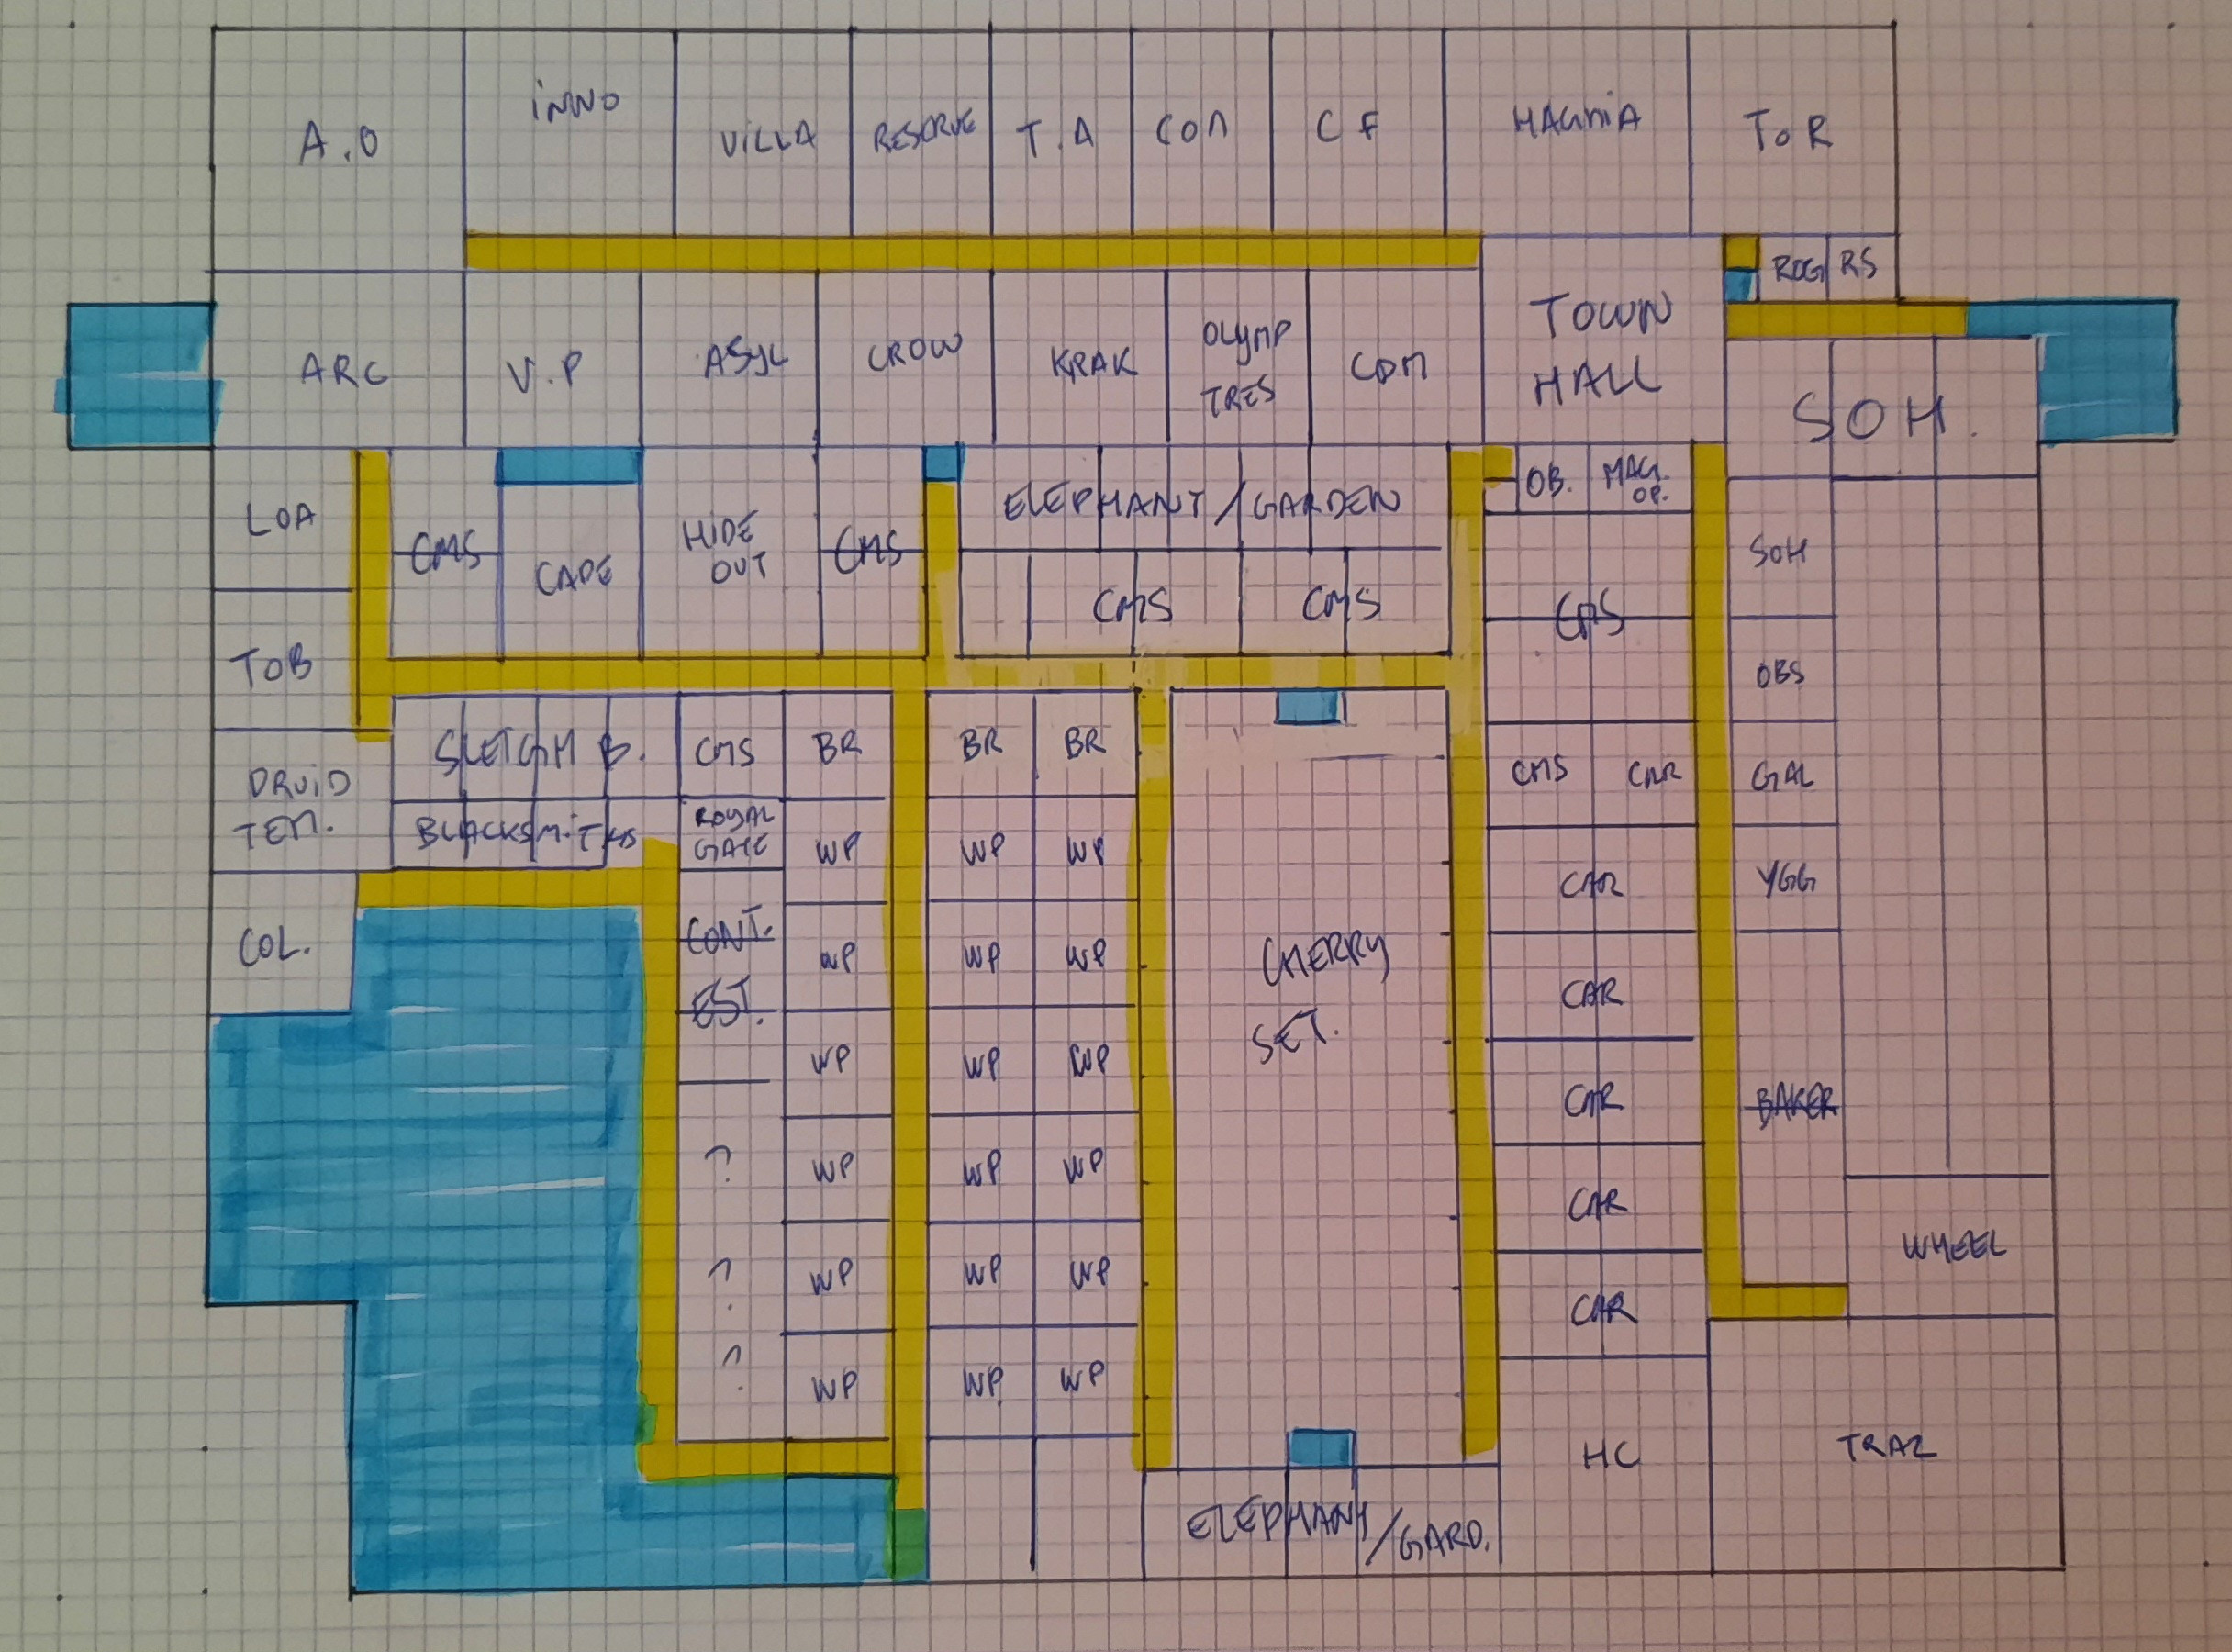 A.O
INNO
VILLA
RESERVE
T.A
COA
CF
MAGNIA
TOR
ROG
RS
ARC
V.P
ASYL
CROW
KRAK
OLYMP
TRES
CDM
TOWN
HALL
SOH.
LOA
CMS
CAPE
HIDE
OUT
CMS
ELEPHANT/GARDEN
OB.
MAG.
OP.
CMS
CMS
CMS
SOH
TOB
OBS
SLEIGH B.
CMS
BR
BR
BR
CMS
CAR
GAL
DRUID
TEM.
BLACKSMITHS
ROYAL
GATE
WP
WP
WP
CAR
YGG
COL.
CONT.
EST.
WP
WP
WP
CHERRY
SET.
CAR
WP
WP
WP
CAR
BAKER
?
WP
WP
WP
CAR
?
WP
WP
WP
CAR
WHEEL
?
WP
WP
WP
HC
TRAZ
ELEPHANT/GARD.